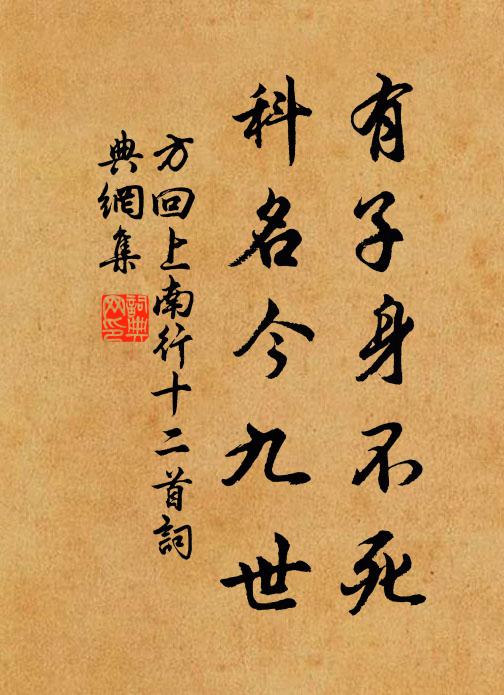 有子身不死
科名今九世
方回上南行十二首詞
典網集
詞典網印